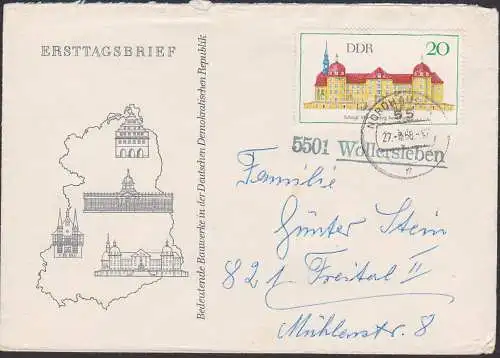 ERSTTAGSBRIEF
Bedeutende Bauwerke in der Deutschen Demokratischen Republik
DDR 20
NORDHAUSEN
55
27.-8.68-17
n
5501 Wollersleben
Familie
Günter Stein
821 Freital II
Mühlenstr. 8